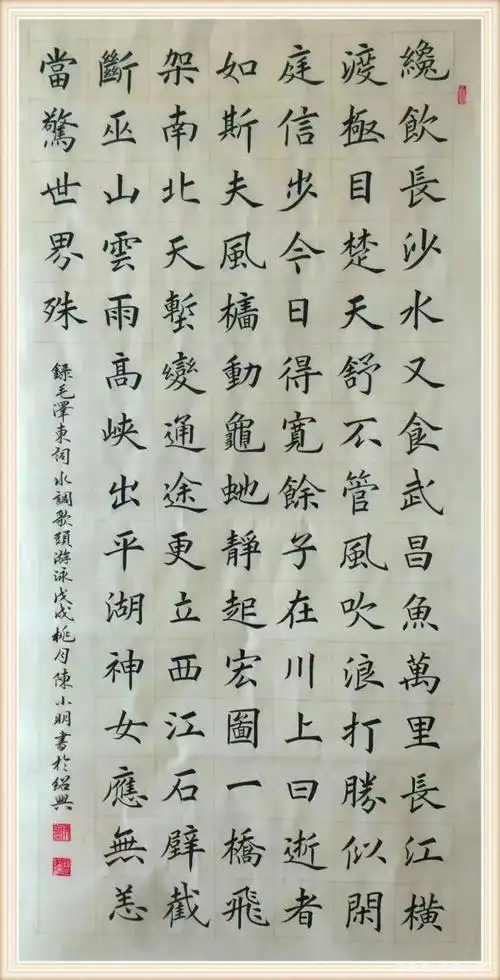 纔飲長沙水又食武昌魚萬里長江橫
渡極目楚天舒不管風吹浪打勝似閑
庭信步今日得寬餘子在川上曰逝者
如斯夫風檣動龜虵靜起宏圖一橋飛
架南北天塹變通途更立西江石壁截
斷巫山雲雨髙峽出平湖神女應無恙
當驚世界殊
錄毛澤東詞水調歌頭游泳戊戌桃月陳小明書於紹興